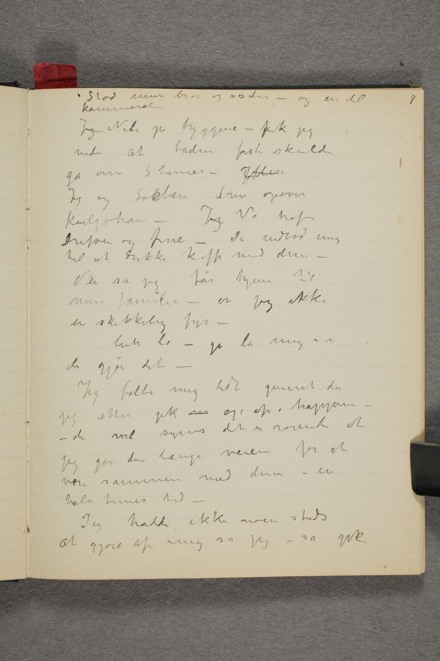 Stod min bror og søster – og en del
kammerater
8
Jeg Nede på byggene – fik jeg
vide at båden først skulde
gå om 5 timer –
Jeg og drev opover
Karljohan – Jeg Vi traf
og frue – De indbød mig
til at drikke kaffe med dem –
Nei sa jeg får hjem til
min familie – er jeg ikke
en skikkelig fyr –
lo – ja la mig
de gjør det –
Jeg følte mig lidt generet da
jeg atter gik og op i trappen –
– de vil synes det er rørende at
jeg går den lange veien for at
være sammen med dem – en
halv times tid –
Jeg hadde ikke noen steds
at gjøre af mig sa jeg – så gik